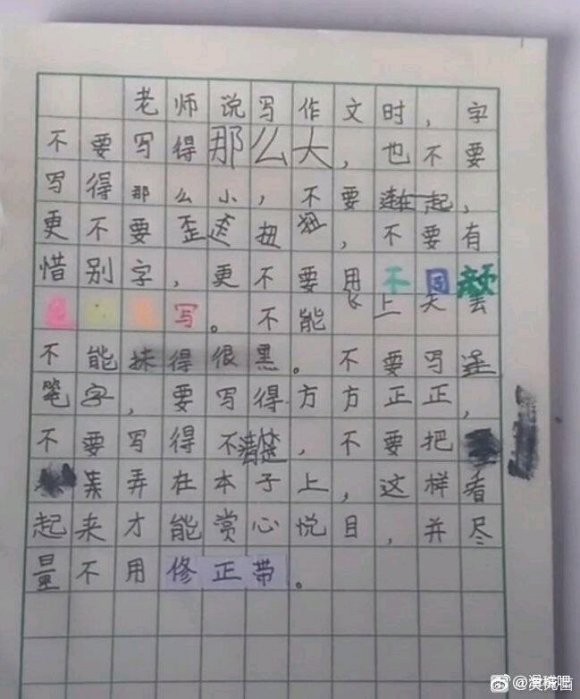 老师说写作文时，字
不要写得那么大，也不要
写得那么小，不要连在一起，
更不要歪歪扭扭，不要有
惜别字，更不要用不同颜
写。不能飞上天去
不能抹得很黑。不要写连
笔字，要写得方方正正，
不要写得不清楚，不要把
弄在本子上，这样看
起来才能赏心悦目，并尽
量不用修正带。